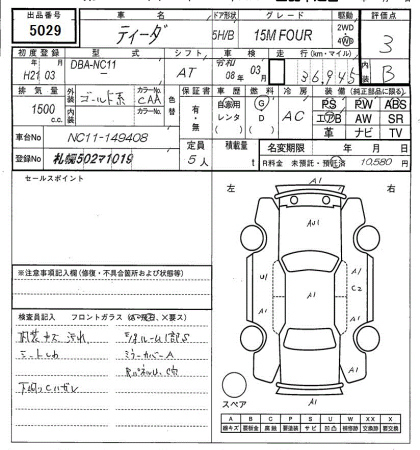 出品番号 車名 ドア形状 グレード 駆動 評価点
5029 ティーダ 5H/B 15M FOUR 2WD 4WD 3
初度登録 型式 シフト 車検 走行(km・マイル) 内装
H21年 03月 DBA-NC11 AT 令和 08年 03月 36,945 B
排気量 外装 カラーNo. 色替 保証書 車歴 燃料 冷房 装備(純正部品に限る)
1500c.c. ゴールド系 CAA 有・無 自家用 レンタ G D AC PS PW ABS
内装 カラーNo. エアB AW SR
革 ナビ TV
車台No NC11-149408 定員 積載量 名変期限 年 月 日
登録No 札幌502マ1019 5人 t R料金 未預託・預託済 10,580円
セールスポイント
左 右
A1
AU1
A1
U1
C2
A1
A1
A1
A1
※注意事項記入欄(修復・不具合箇所および状態等)
検査員記入 フロントガラス ×要ス)
内装キズ 汚れ
ミラーカバーA
下廻りCハガレ
スペア
A B C P S U W X XX
線キズ 要板金 腐蝕 要塗装 サビ 凹凸 補修跡 交換跡 要交換